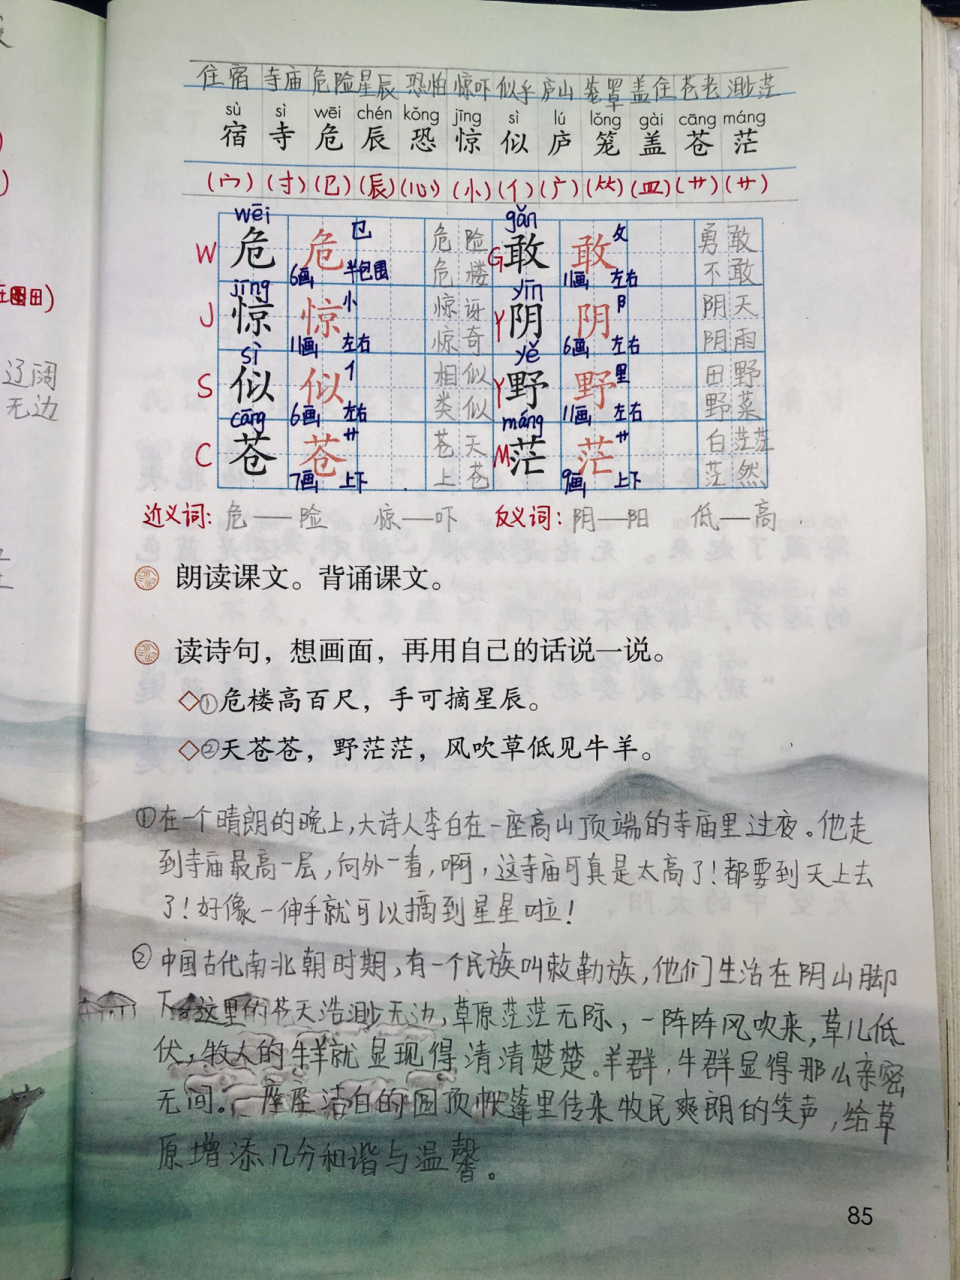 住宿 寺庙 危险 星辰 恐怕 惊吓 似乎 庐山 笼罩 盖住 苍老 渺茫
sù sì wēi chén kǒng jīng sì lú lǒng gài cāng máng
宿 寺 危 辰 恐 惊 似 庐 笼 盖 苍 茫
(宀) (寸) (㔾) (辰) (心) (忄) (亻) (广) (⺮) (皿) (艹) (艹)
wēi gǎn
W 危 危 㔾 6画 半包围 危险 危楼 G 敢 敢 攵 11画 左右 勇敢 不敢
jīng yīn
J 惊 惊 忄 11画 左右 惊讶 惊奇 Y 阴 阴 阝 6画 左右 阴天 阴雨
sì yě
S 似 似 亻 6画 左右 相似 类似 Y 野 野 里 11画 左右 田野 野菜
cāng máng
C 苍 苍 艹 7画 上下 苍天 上苍 M 茫 茫 艹 9画 上下 白茫茫 茫然
近义词: 危——险 惊——吓 反义词: 阴——阳 低——高
朗读课文。背诵课文。
读诗句，想画面，再用自己的话说一说。
◇①危楼高百尺，手可摘星辰。
◇②天苍苍，野茫茫，风吹草低见牛羊。
①在一个晴朗的晚上,大诗人李白在一座高山顶端的寺庙里过夜。他走
到寺庙最高一层,向外一看,啊,这寺庙可真是太高了!都要到天上去
了!好像一伸手就可以摘到星星啦!
②中国古代南北朝时期,有一个民族叫敕勒族,他们生活在阴山脚
下。这里的苍天浩渺无边,草原茫茫无际,一阵阵风吹来,草儿低
伏,牧人的牛羊就显现得清清楚楚。羊群,牛群显得那么亲密
无间。一座座洁白的圆顶帐篷里传来牧民爽朗的笑声,给草
原增添几分和谐与温馨。
85
辽阔
无边